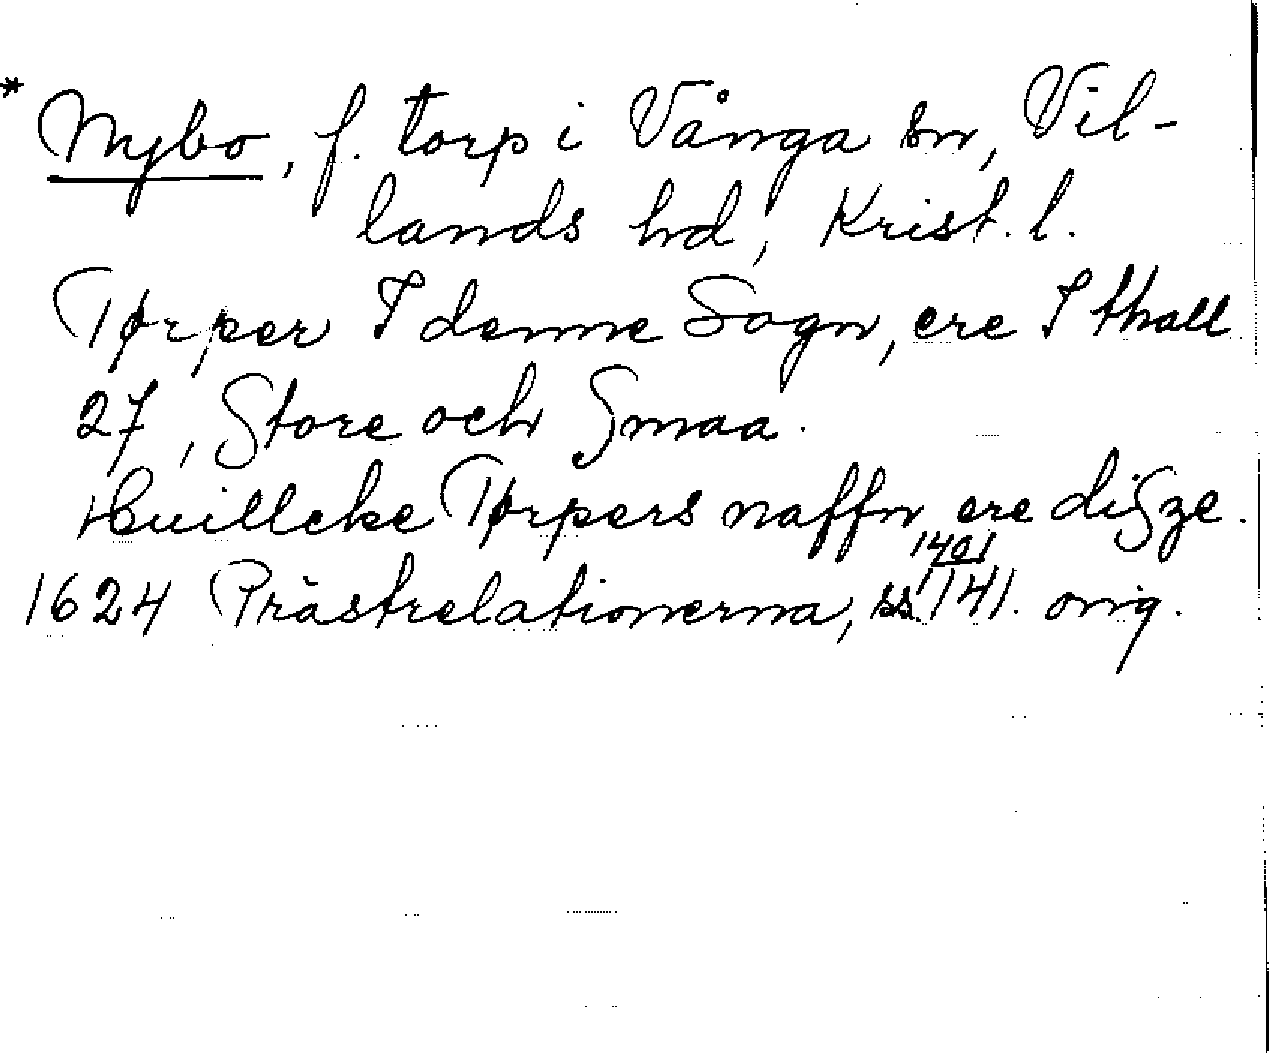 * Nybo, f. torp i Vånga sn, Vil-
lands hd, Krist. l.
Tørper I denne Sogn, ere I thall
27, Store och Smaa.
Huillcke Tørpers naffn ere diſze.
1401
1624 Prästrelationerna, ss. 141. orig.